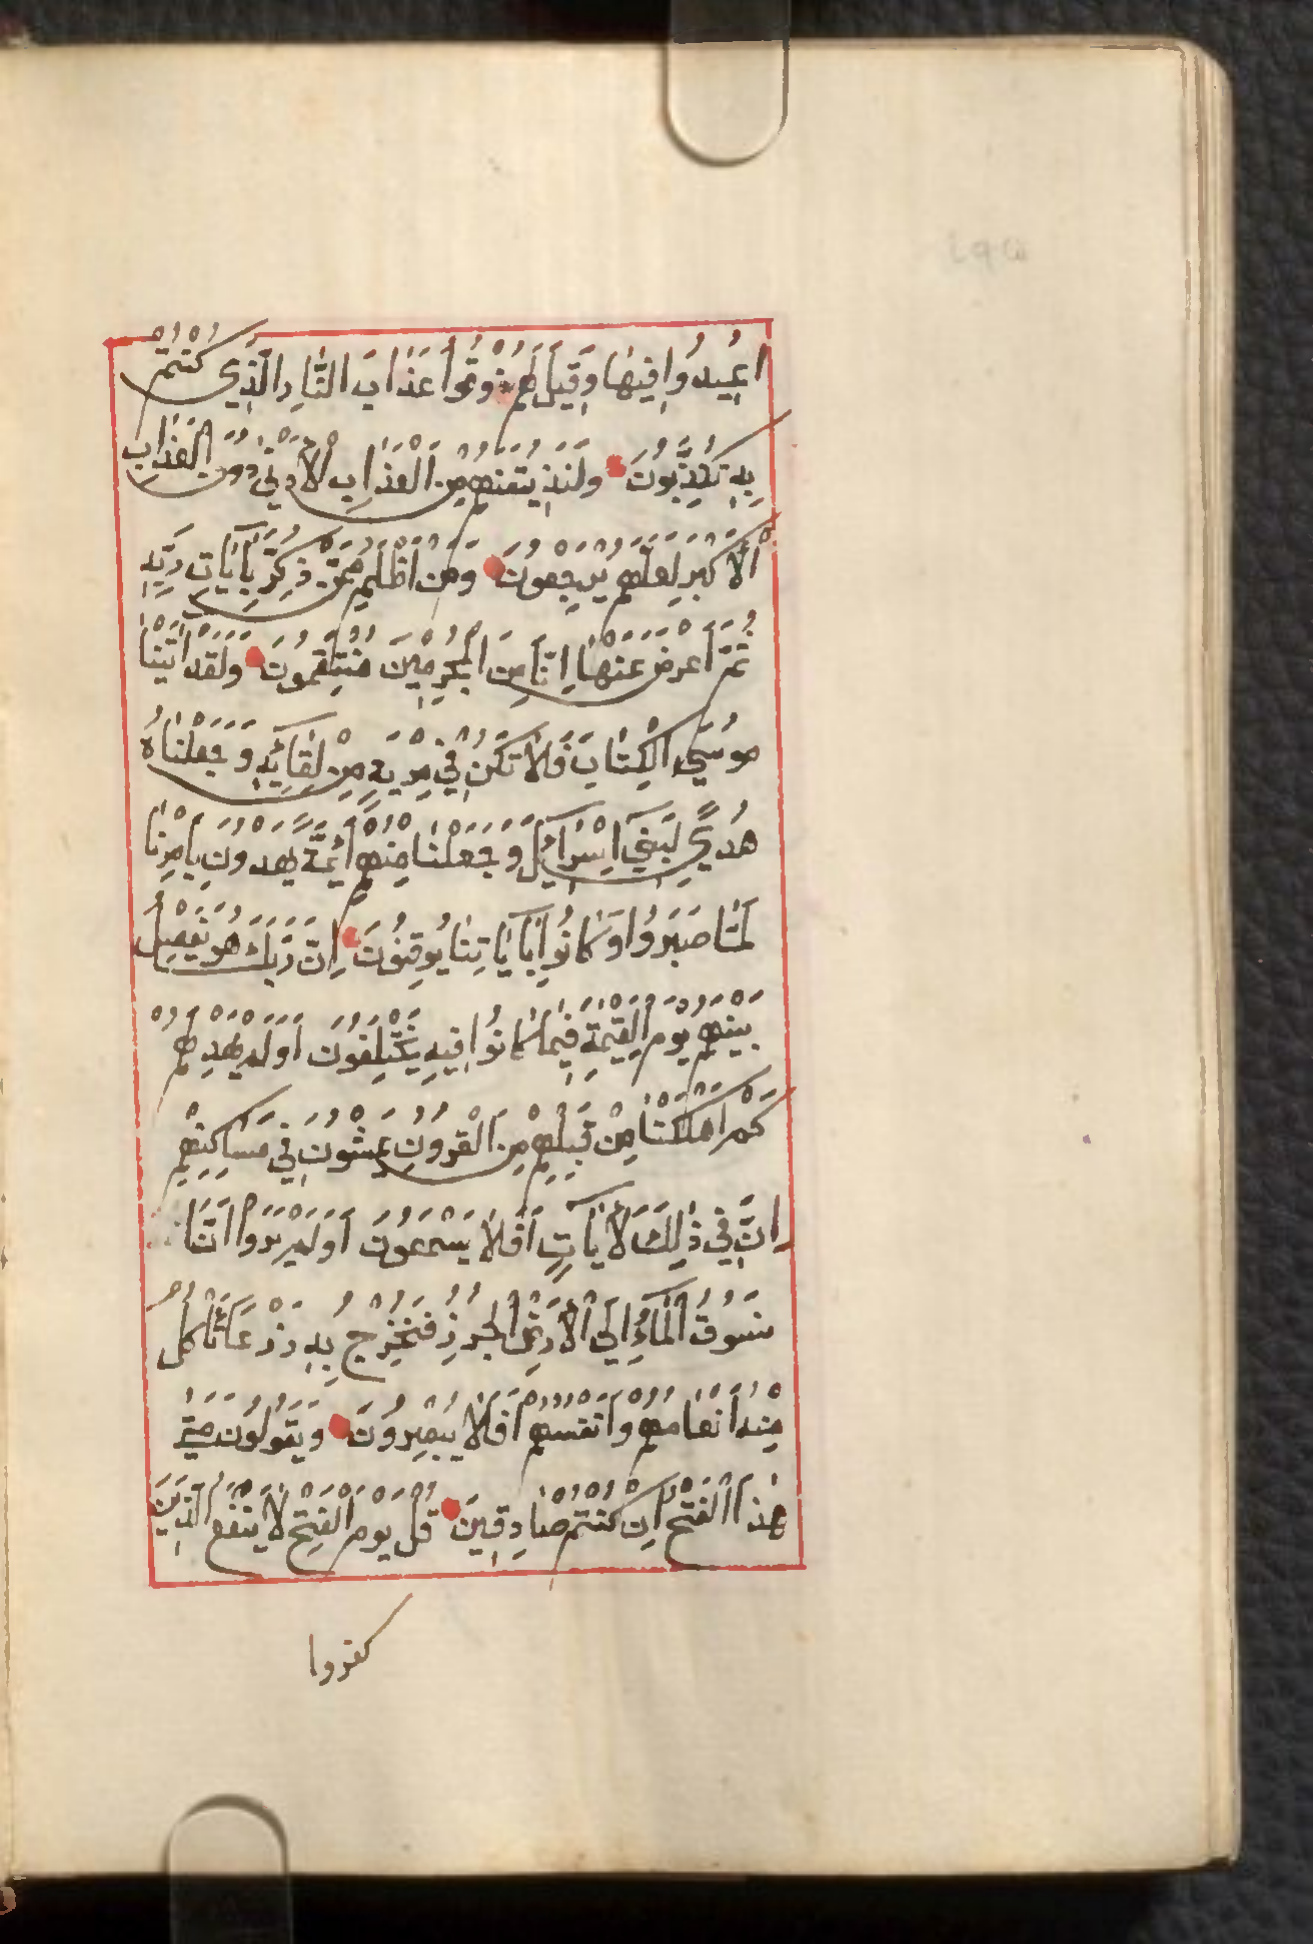 اُعِيدُوا فِيهَا وَقِيلَ لَهُمْ ذُوقُوا عَذَابَ النَّارِ الَّذِي كُنْتُمْ
بِهِ تُكَذِّبُونَ وَلَنُذِيقَنَّهُمْ مِنَ الْعَذَابِ الْأَدْنَى دُونَ الْعَذَابِ
الْأَكْبَرِ لَعَلَّهُمْ يَرْجِعُونَ وَمَنْ أَظْلَمُ مِمَّنْ ذُكِّرَ بِآيَاتِ رَبِّهِ
ثُمَّ أَعْرَضَ عَنْهَا اِنَّا مِنَ الْمُجْرِمِينَ مُنْتَقِمُونَ وَلَقَدْ اٰتَيْنَا
مُوسَى الْكِتَابَ فَلَا تَكُنْ فِي مِرْيَةٍ مِنْ لِقَائِهِ وَجَعَلْنَاهُ
هُدًى لِبَنِي اِسْرَائِيلَ وَجَعَلْنَا مِنْهُمْ أَئِمَّةً يَهْدُونَ بِأَمْرِنَا
لَمَّا صَبَرُوا وَكَانُوا بِآيَاتِنَا يُوقِنُونَ اِنَّ رَبَّكَ هُوَ يَفْصِلُ
بَيْنَهُمْ يَوْمَ الْقِيٰمَةِ فِيمَا كَانُوا فِيهِ يَخْتَلِفُونَ أَوَلَمْ يَهْدِ لَهُمْ
كَمْ أَهْلَكْنَا مِنْ قَبْلِهِمْ مِنَ الْقُرُونِ يَمْشُونَ فِي مَسَاكِنِهِمْ
اِنَّ فِي ذَلِكَ لَأٰيَاتٍ أَفَلَا يَسْمَعُونَ أَوَلَمْ يَرَوْا أَنَّا
نَسُوقُ الْمَاءَ اِلَى الْأَرْضِ الْجُرُزِ فَنُخْرِجُ بِهِ زَرْعًا تَأْكُلُ
مِنْهُ أَنْعَامُهُمْ وَأَنْفُسُهُمْ أَفَلَا يُبْصِرُونَ وَيَقُولُونَ مَتَى
هَذَا الْفَتْحُ اِنْ كُنْتُمْ صَادِقِينَ قُلْ يَوْمَ الْفَتْحِ لَا يَنْفَعُ الَّذِينَ
كفروا